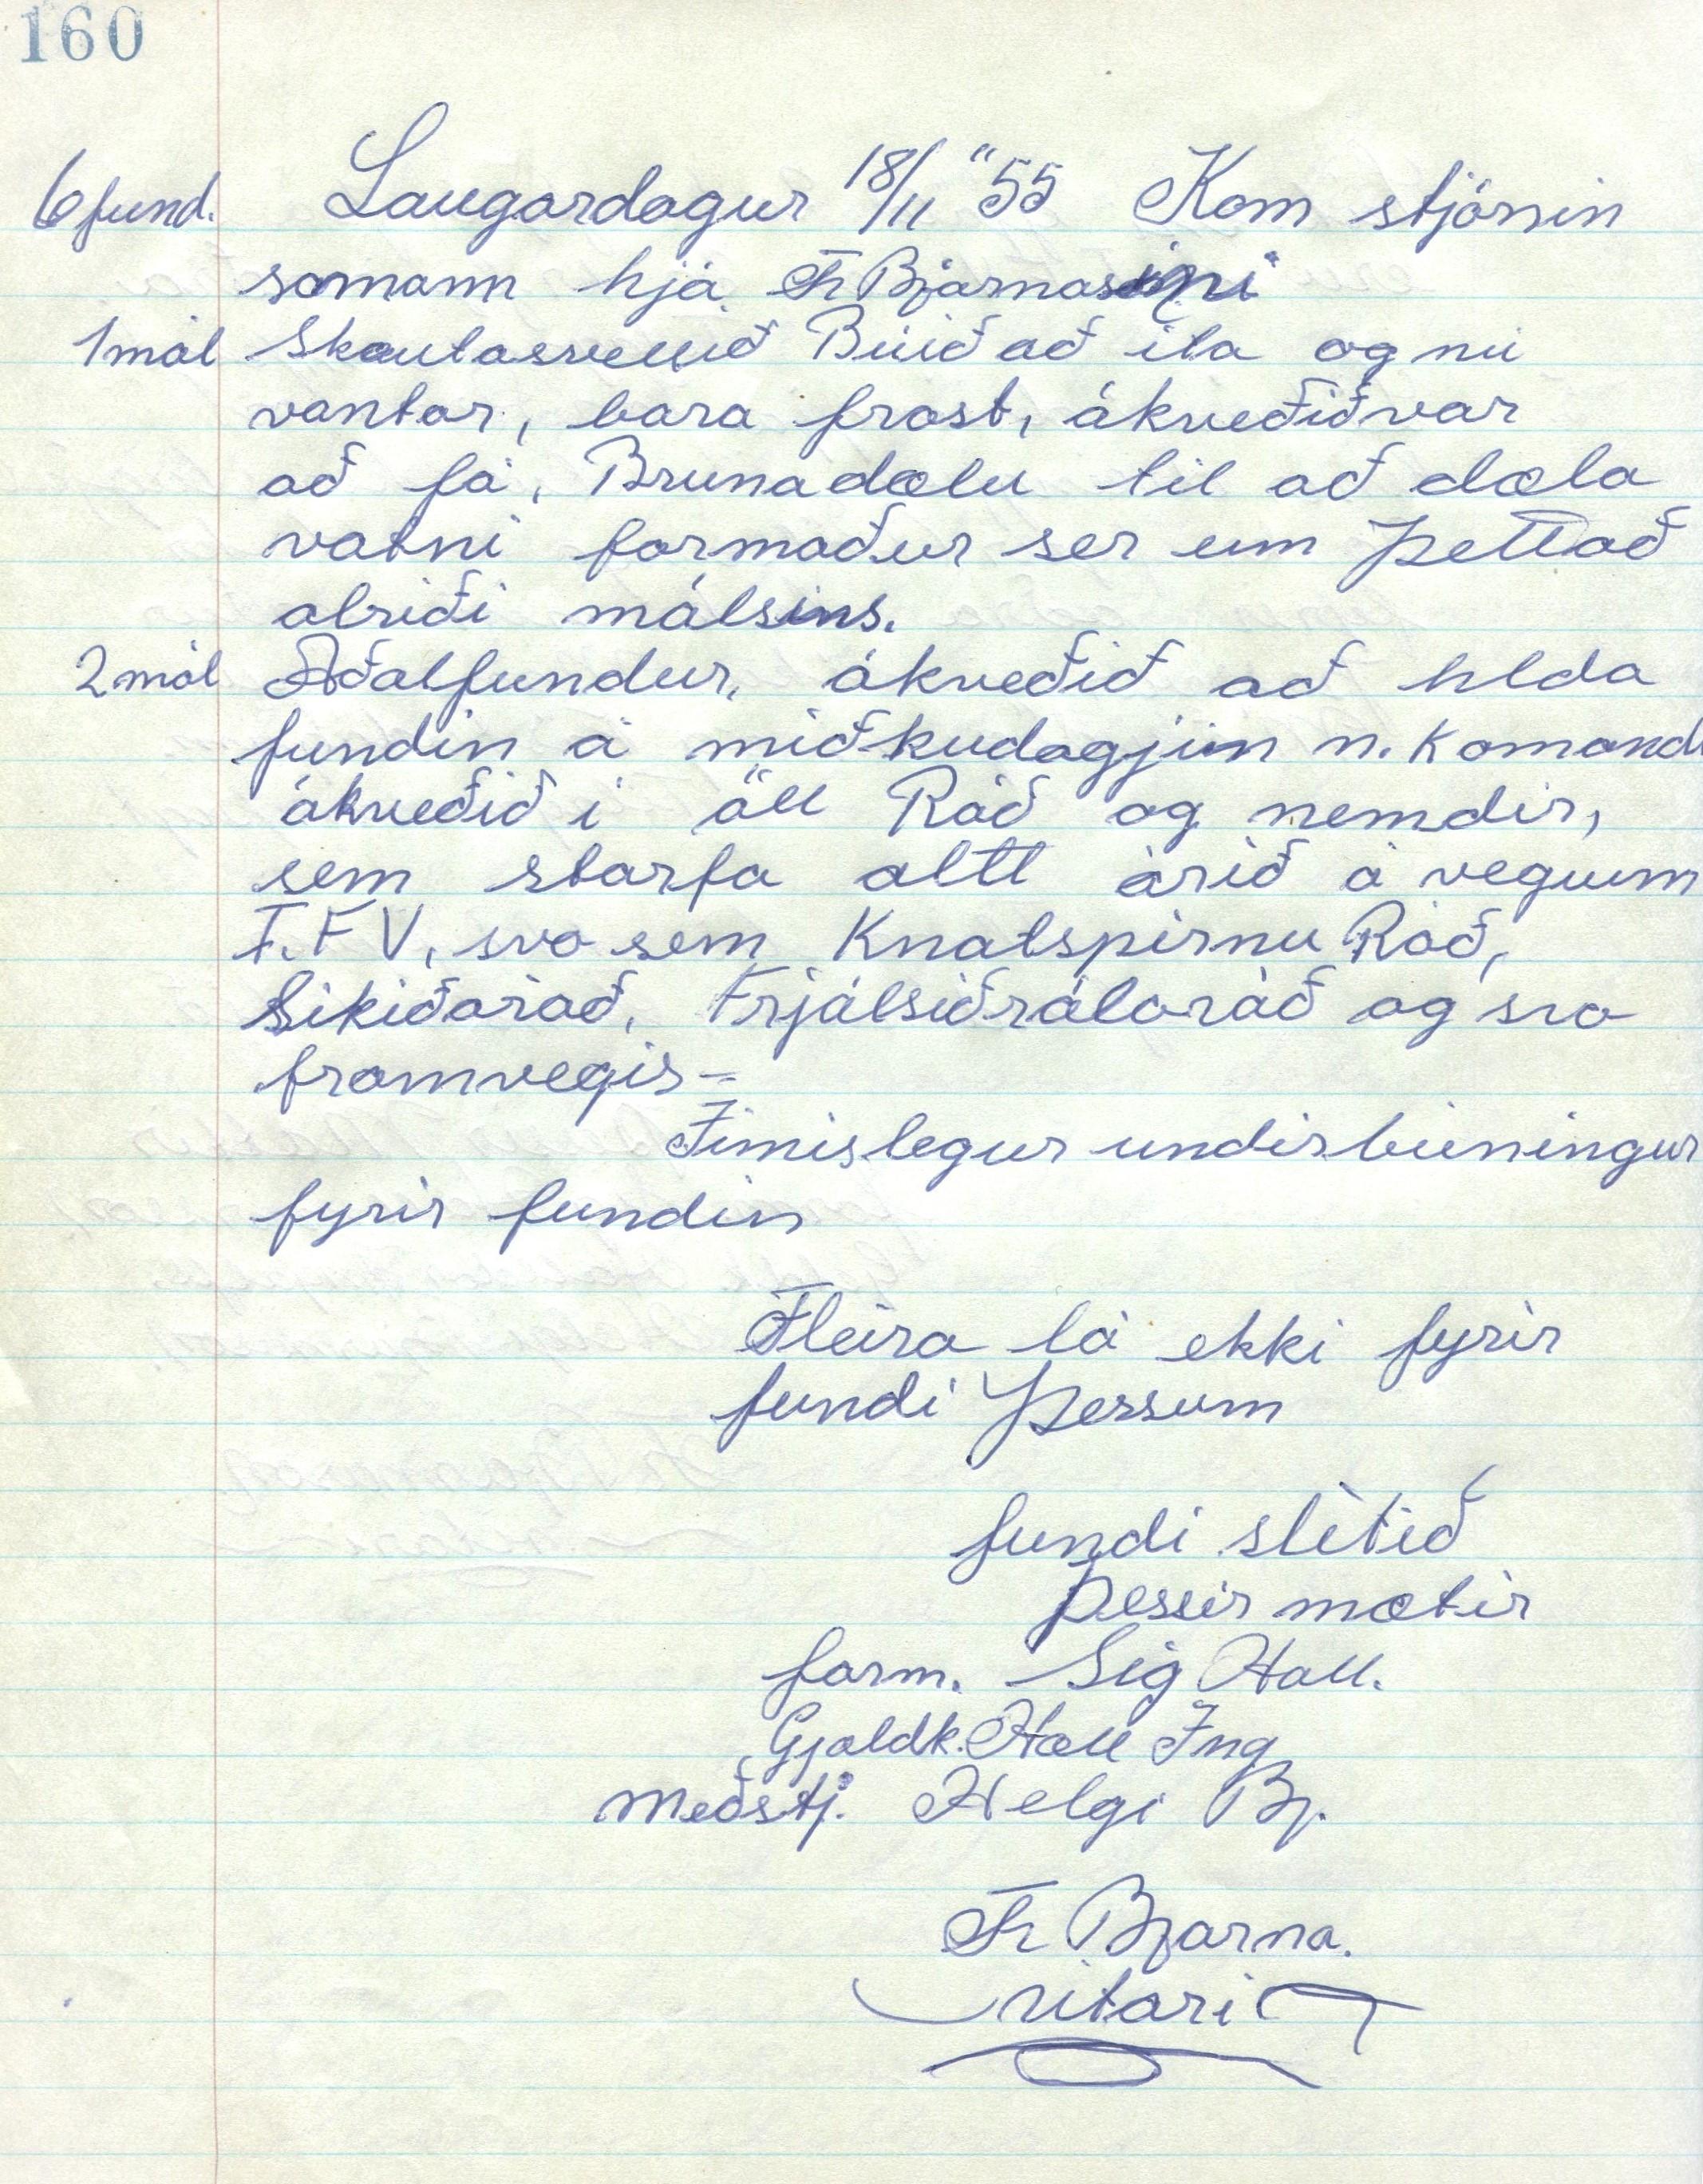 160
6 fund. Laugardagur 18/11 "55 Kom stjórnin
samann hjá Fr Bjarnasini
1 mál Skautasvellið Búið að íta og nú
vantar, bara frost, ákveðið var
að fá, Brunadælu til að dæla
vatni formaður ser um þettað
alriði málsins.
2 mál Aðalfundur, ákveðið að hlda
fundin á miðkudagjin n. Komandi
ákveðið í öll Ráð og nemdir,
sem starfa altt árið á vegum
Í.F V, svo sem Knatspirnu Ráð,
Sikiðaráð, Frjálsiðrálaráð og svo
framvegis -
Ímislegur undirbúningur
fyrir fundin
Fleira lá ekki fyrir
fundi þessum
fundi slitið
þessir mætir
form. Sig Hall.
Gjaldk. Hall Ing
Meðstj. Helgi Bj.
Fr Bjarna.
ritari